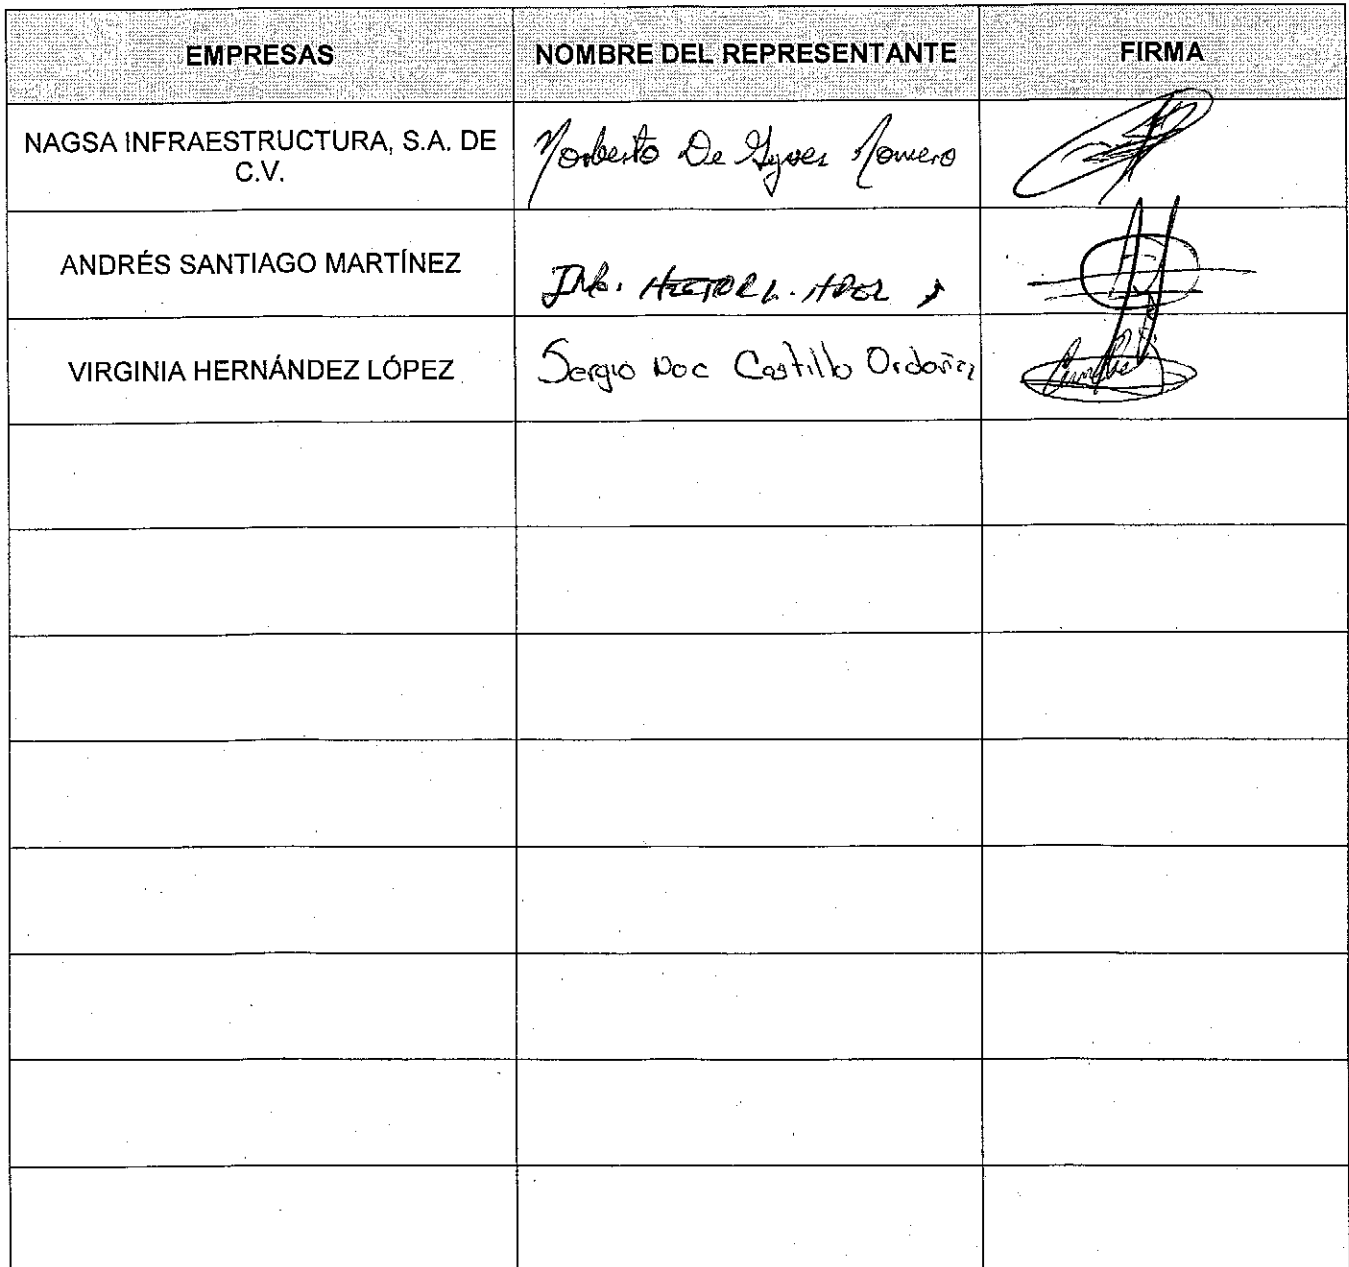 EMPRESAS NOMBRE DEL REPRESENTANTE FIRMA
NAGSA INFRAESTRUCTURA, S.A. DE
C.V.
Norberto De Gyves Romero
ANDRÉS SANTIAGO MARTÍNEZ
HECTOR L. HDEZ
VIRGINIA HERNÁNDEZ LÓPEZ Sergio Noe Castillo Ordoñez